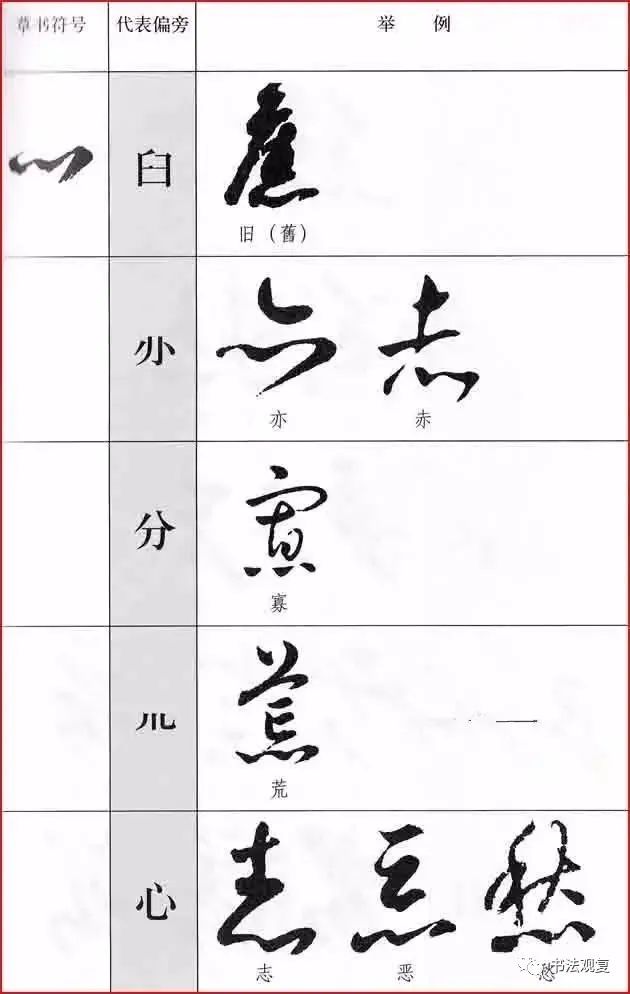 草书符号 代表偏旁 举例
臼
旧（舊）
亦 赤
分
寡
荒
心
志 恶 愁
书法观复